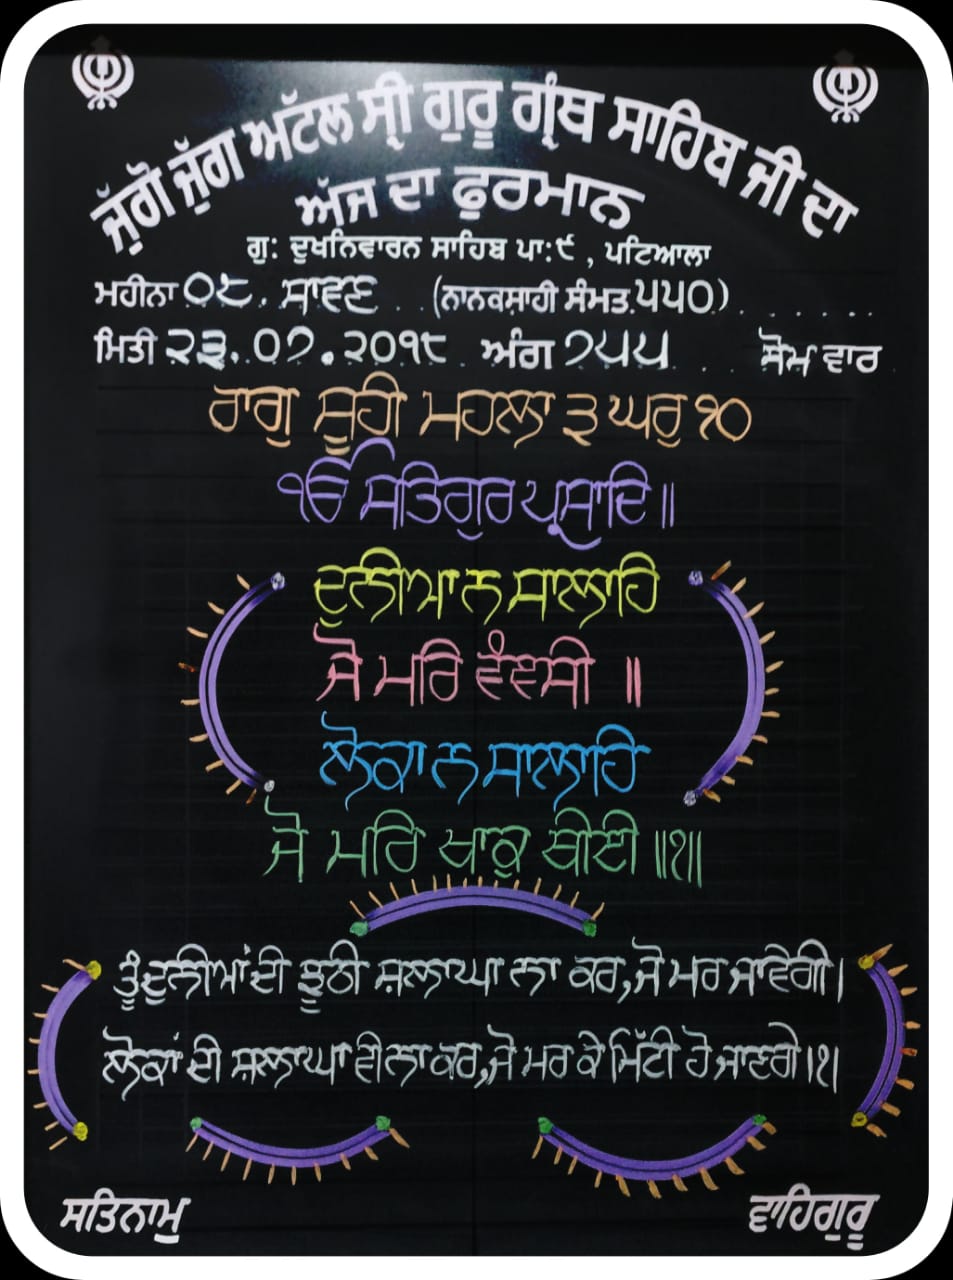 ਜੁੱਗੋ ਜੁੱਗ ਅਟੱਲ ਸ੍ਰੀ ਗੁਰੂ ਗ੍ਰੰਥ ਸਾਹਿਬ ਜੀ ਦਾ
ਅੱਜ ਦਾ ਫੁਰਮਾਨ
ਗੁ: ਦੁਖਨਿਵਾਰਨ ਸਾਹਿਬ ਪਾ:੯ , ਪਟਿਆਲਾ
ਮਹੀਨਾ ੦੮. ਸਾਵਣ (ਨਾਨਕਸ਼ਾਹੀ ਸੰਮਤ ੫੫੦)
ਮਿਤੀ ੨੩.੦੭.੨੦੧੮ ਅੰਗ ੭੫੫ ਸੋਮ ਵਾਰ
ਰਾਗੁ ਸੂਹੀ ਮਹਲਾ ੩ ਘਰੁ ੧੦
ੴ ਸਤਿਗੁਰ ਪ੍ਰਸਾਦਿ॥
ਦੁਨੀਆ ਨ ਸਾਲਾਹਿ
ਜੋ ਮਰਿ ਵੰਞਸੀ ॥
ਲੋਕਾ ਨ ਸਾਲਾਹਿ
ਜੋ ਮਰਿ ਖਾਕੁ ਥੀਈ ॥੧॥
ਤੂੰ ਦੁਨੀਆਂ ਦੀ ਝੂਠੀ ਸ਼ਲਾਘਾ ਨਾ ਕਰ, ਜੋ ਮਰ ਜਾਵੇਗੀ।
ਲੋਕਾਂ ਦੀ ਸ਼ਲਾਘਾ ਵੀ ਨਾ ਕਰ, ਜੋ ਮਰ ਕੇ ਮਿੱਟੀ ਹੋ ਜਾਣਗੇ।੧।
ਸਤਿਨਾਮੁ
ਵਾਹਿਗੁਰੂ